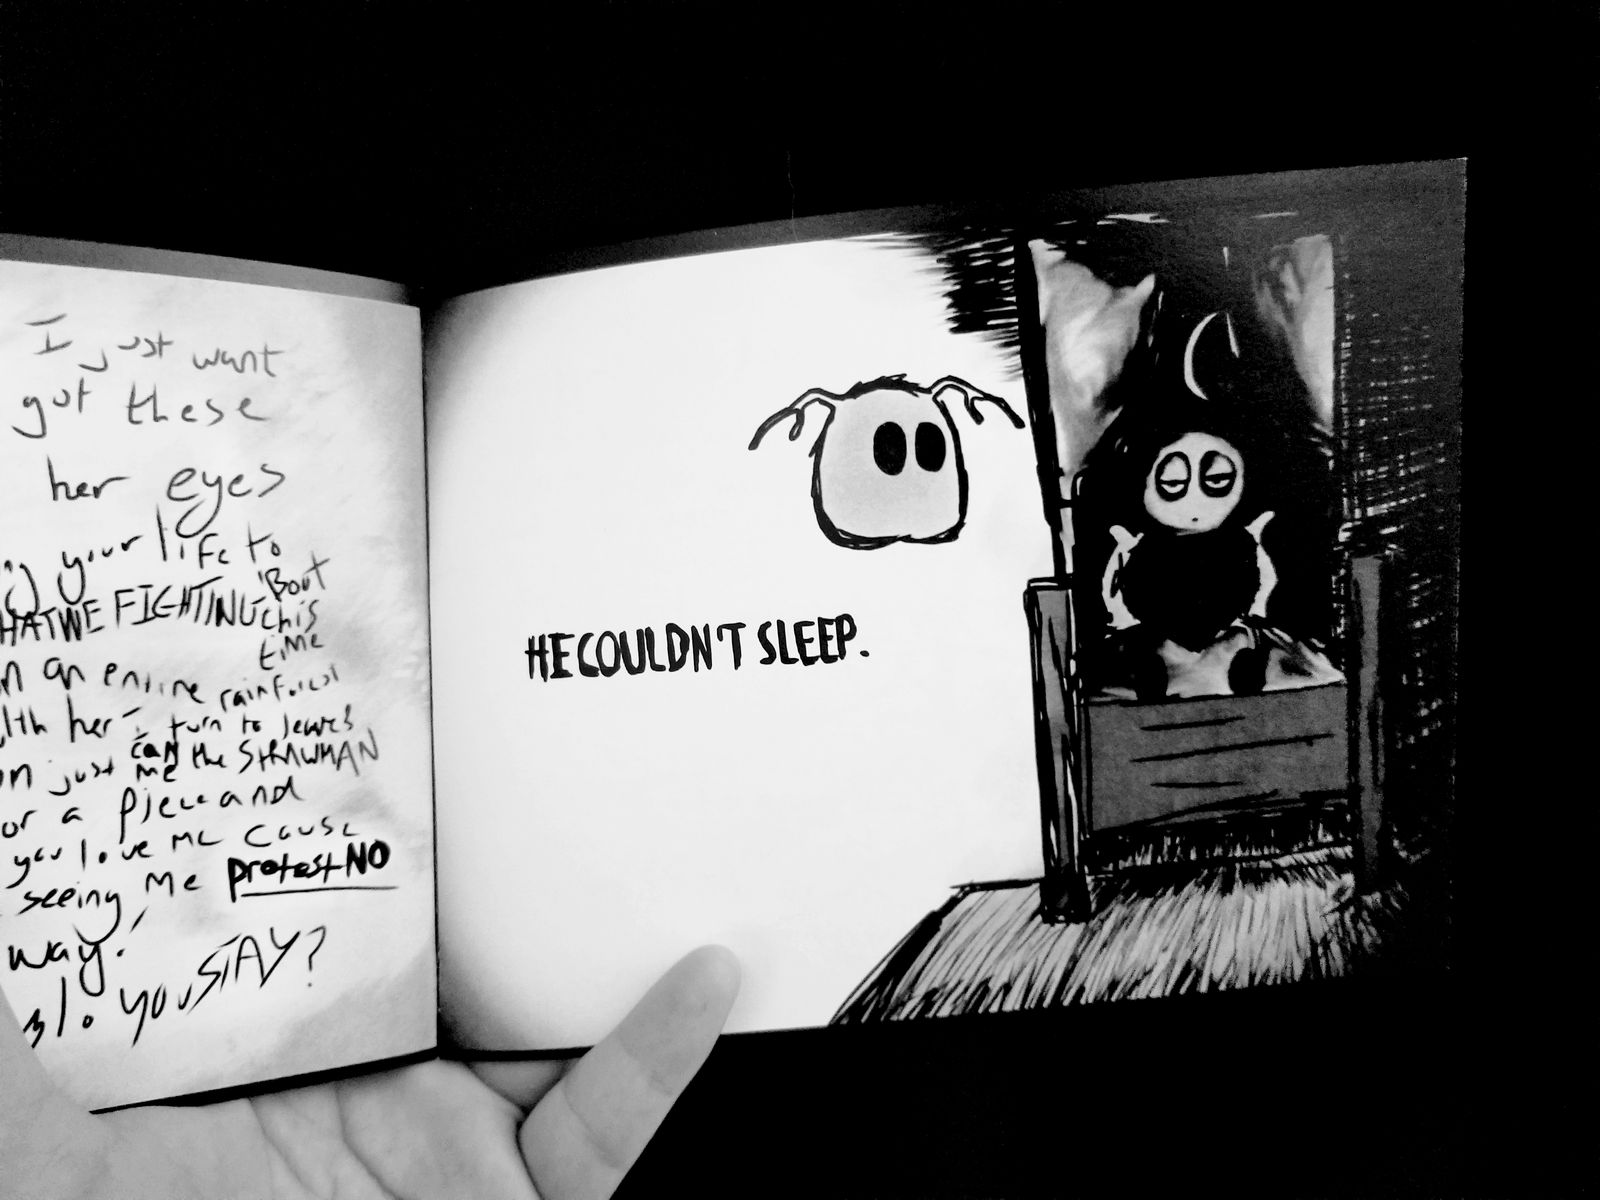 I just want
gut these
her eyes
your life to
WE FIGHTING 'Bout this time
an entire rainforest
her I turn to
just can me the STRAWMAN
or a piece and
you love me cause
seeing me protest NO
way!
YOU STAY?
HE COULDN'T SLEEP.